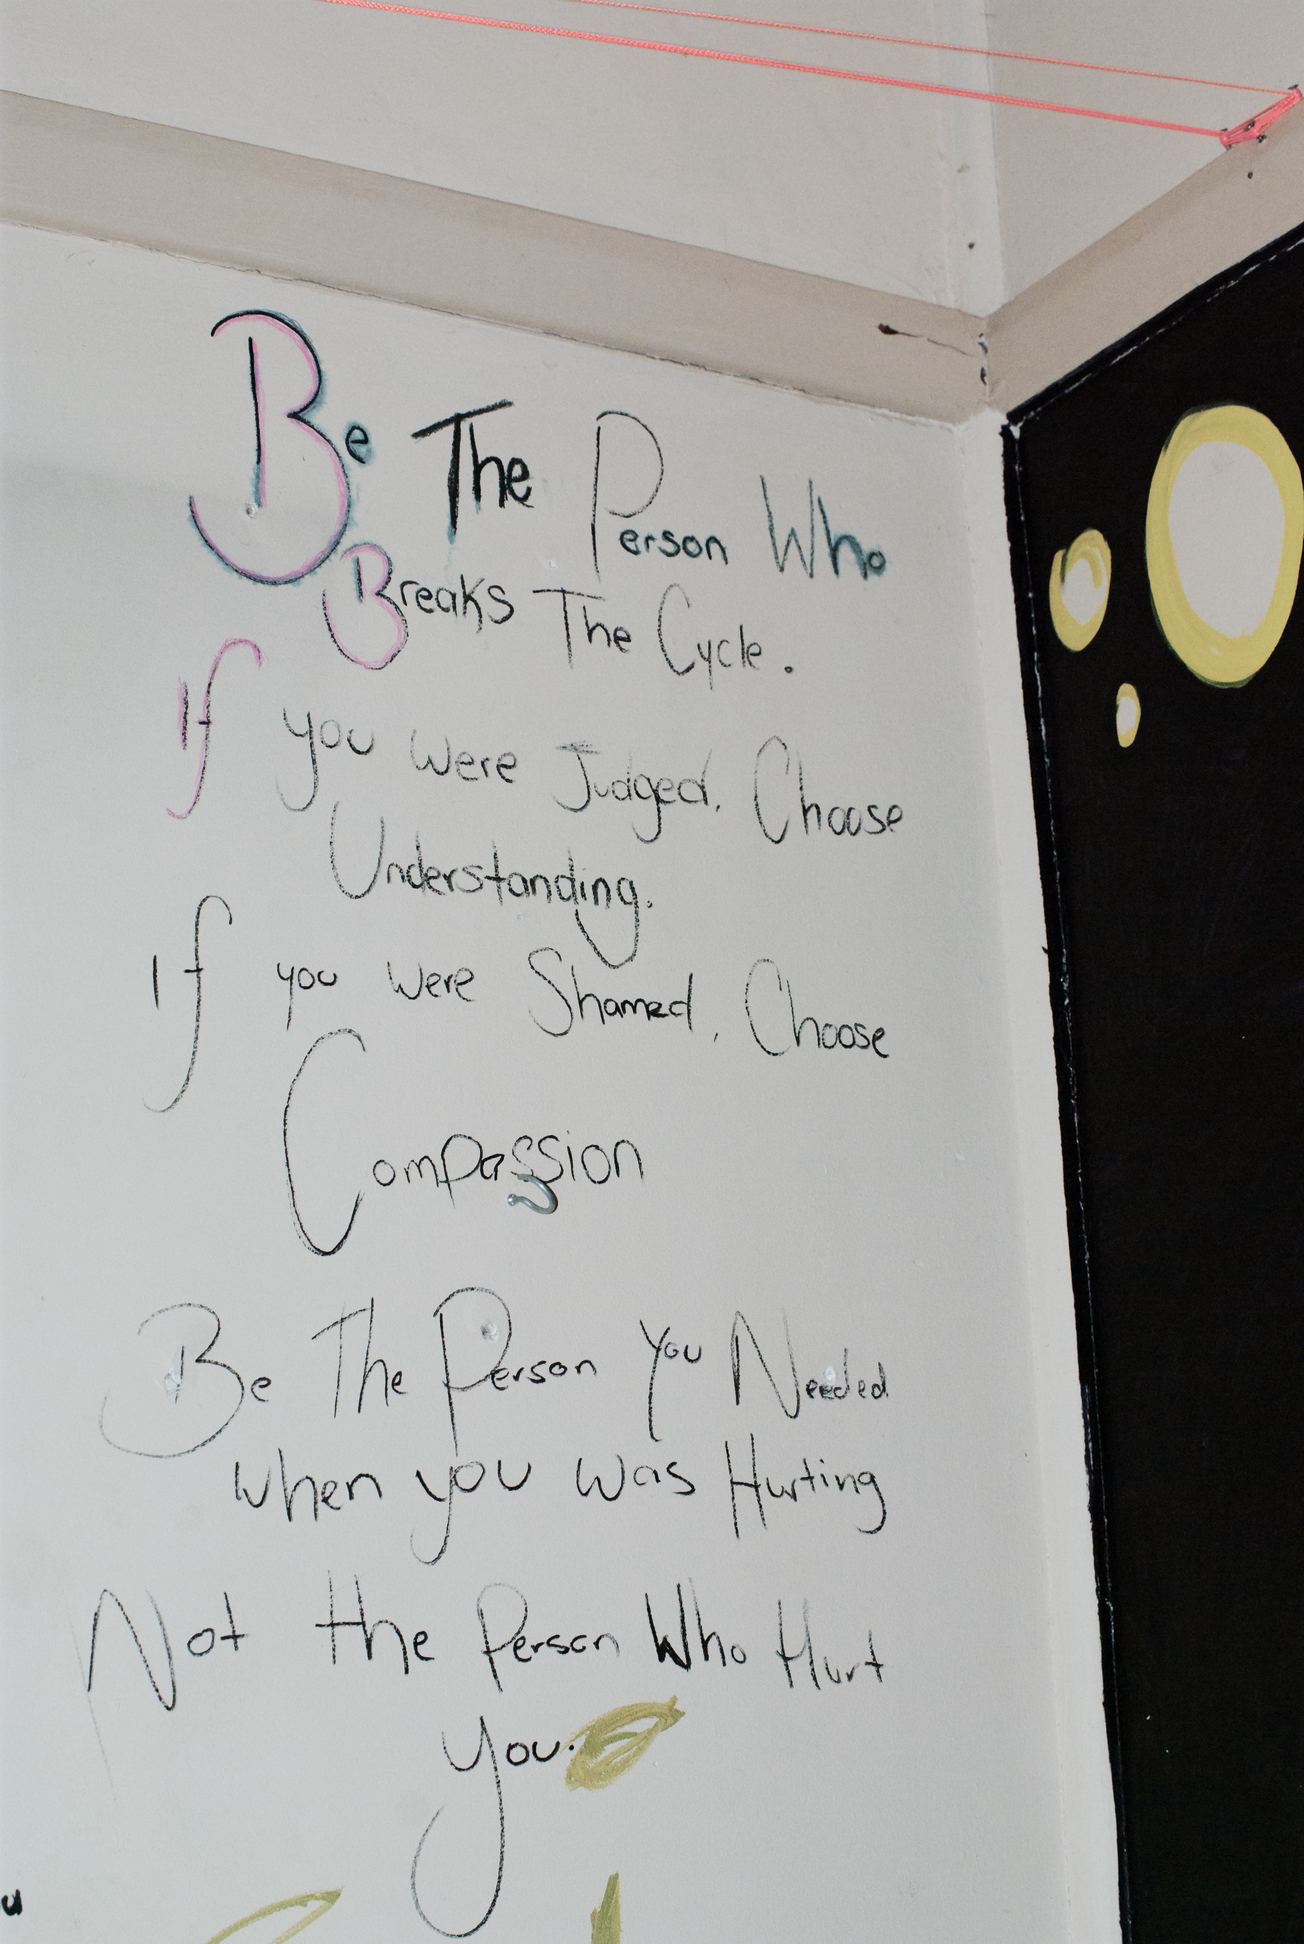 Be The Person Who
Breaks The Cycle.
If you were Judged, Choose
Understanding.
If you were Shamed, Choose
Compassion
Be The Person You Needed
when you was Hurting
Not the Person Who Hurt
you.